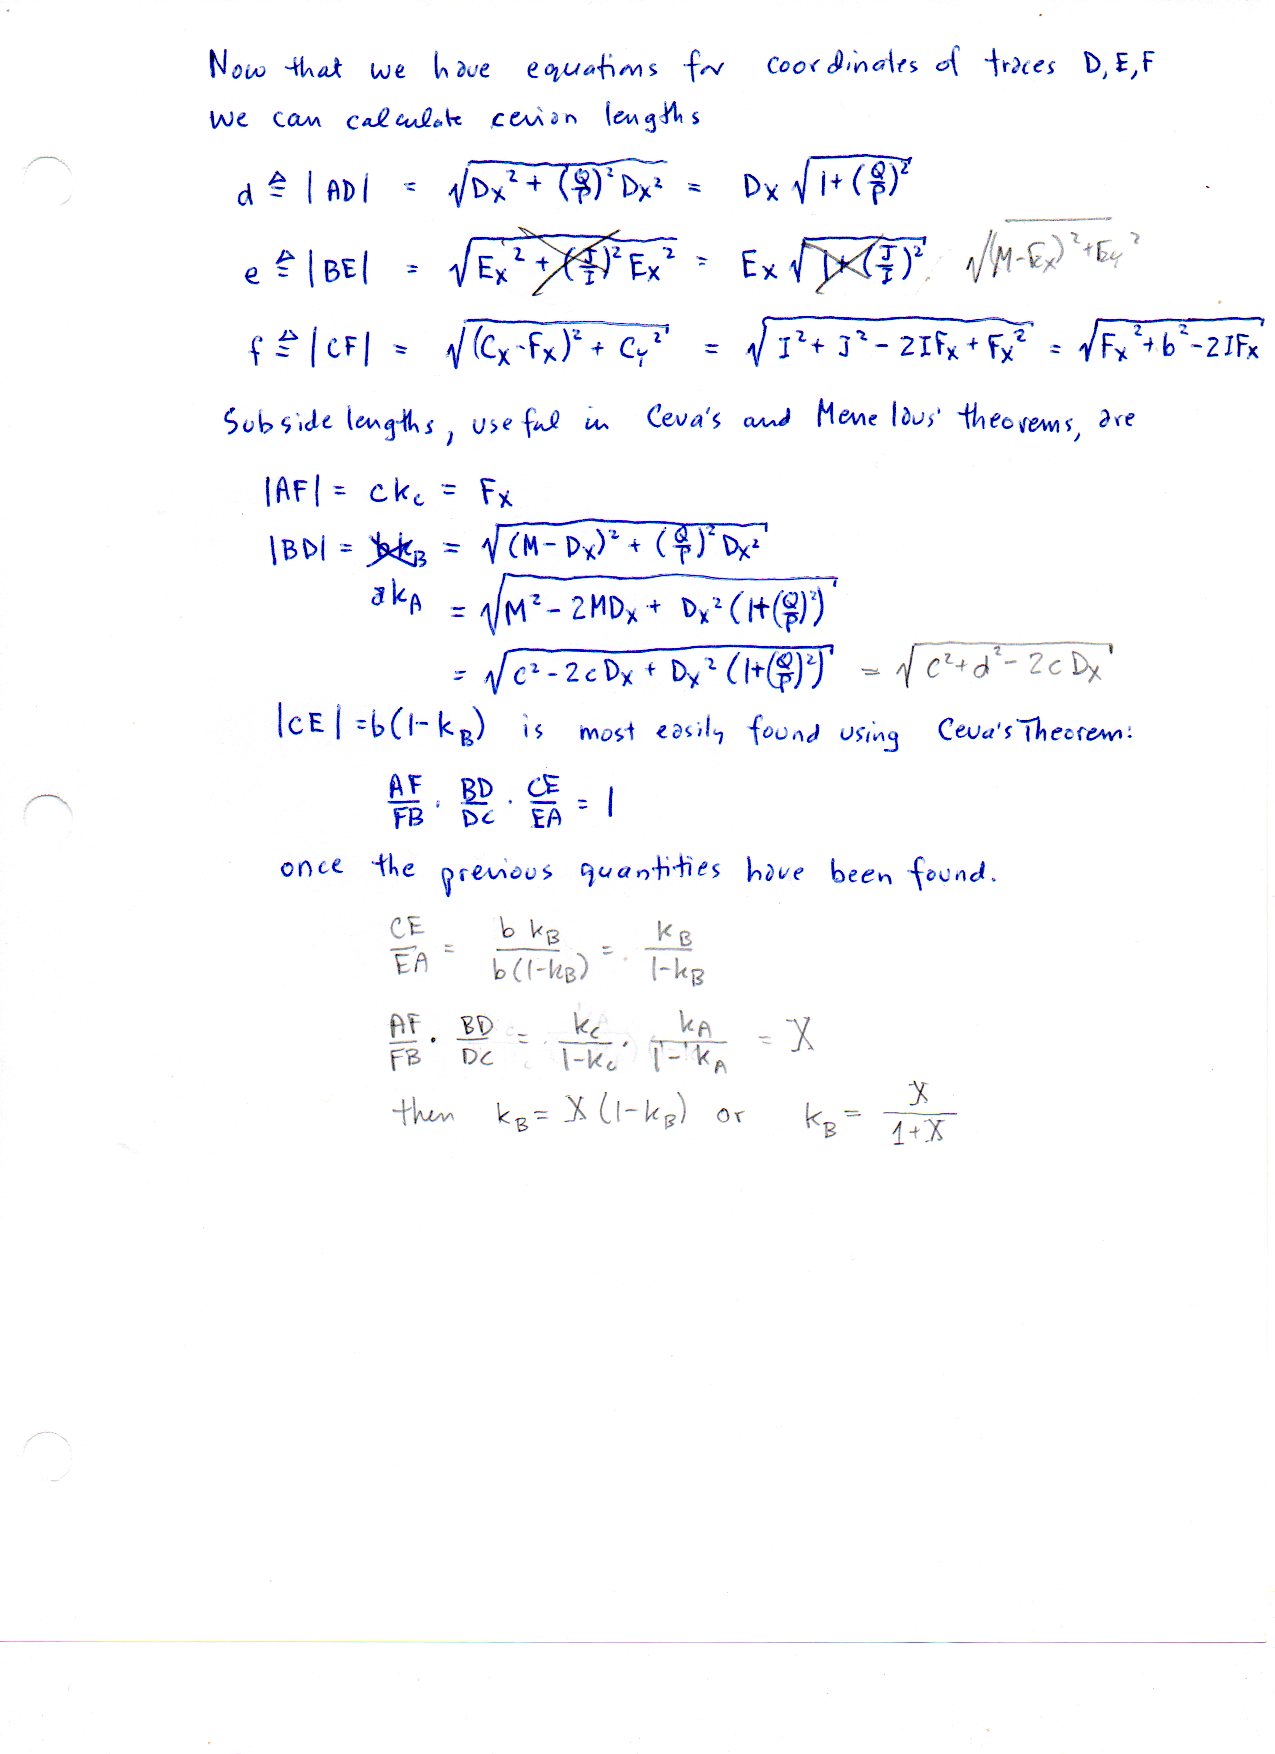 Now that we have equations for coordinates of traces D, E, F
we can calculate cevian lengths
d ≜ |AD| = √(Dx² + (Q/P)² Dx²) = Dx √(1+(Q/P)²)
e ≜ |BE| = √(Ex² + (J/I)² Ex²) = Ex √(1+(J/I)²) √((M-Ex)²+Ey²)
f ≜ |CF| = √((Cx-Fx)² + Cy²) = √(I² + J² - 2IFx + Fx²) = √(Fx² + b² - 2IFx)
Subside lengths, useful in Ceva's and Menelaus' theorems, are
|AF| = ckc = Fx
|BD| = bkB = √((M-Dx)² + (Q/P)² Dx²)
akA = √(M² - 2MDx + Dx² (1+(Q/P)²))
= √(c² - 2cDx + Dx² (1+(Q/P)²)) = √(c²+d²-2cDx)
|CE| = b(1-kB) is most easily found using Ceva's Theorem:
AF/FB · BD/DC · CE/EA = 1
once the previous quantities have been found.
CE/EA = b kB/b(1-kB) = kB/1-kB
AF/FB · BD/DC = kc/1-kc · kA/1-kA = X
then kB = X(1-kB) or kB = X/1+X